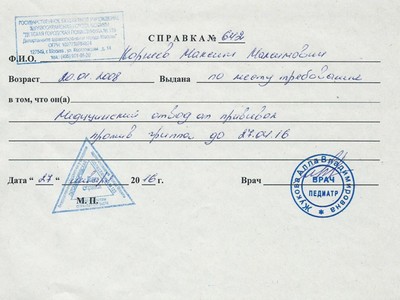 ГОСУДАРСТВЕННОЕ БЮДЖЕТНОЕ УЧРЕЖДЕНИЕ
СПРАВКА № 6452
Ф.И.О. Корнеев Максим Максимович
Возраст 20.01.2008 Выдана по месту требования
в том, что он(а)
Медицинский отвод от прививок
против гриппа до 27.04.16
Дата “ 27 ” января 2016 г. Врач
М. П.
Жукова Алла Владимировна
ВРАЧ
ПЕДИАТР